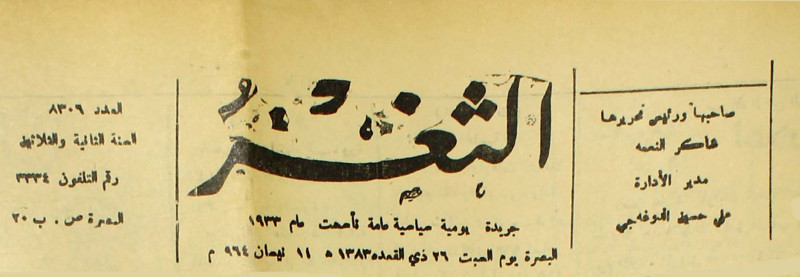 صاحبها ورئيس تحريرها
شاكر النعمه
مدير الأدارة
علي حسين الدوغه‌جي
الثغر
جريدة يومية سياسية عامة تأسست عام ١٩٣٣
البصرة يوم السبت ٢٦ ذي القعدة ١٣٨٣ ه ١١ نيسان ٩٦٤ م
العدد ٨٣٠٩
السنة الثانية والثلاثين
رقم التلفون ٣٣٣٤
البصرة ص . ب ٢٠